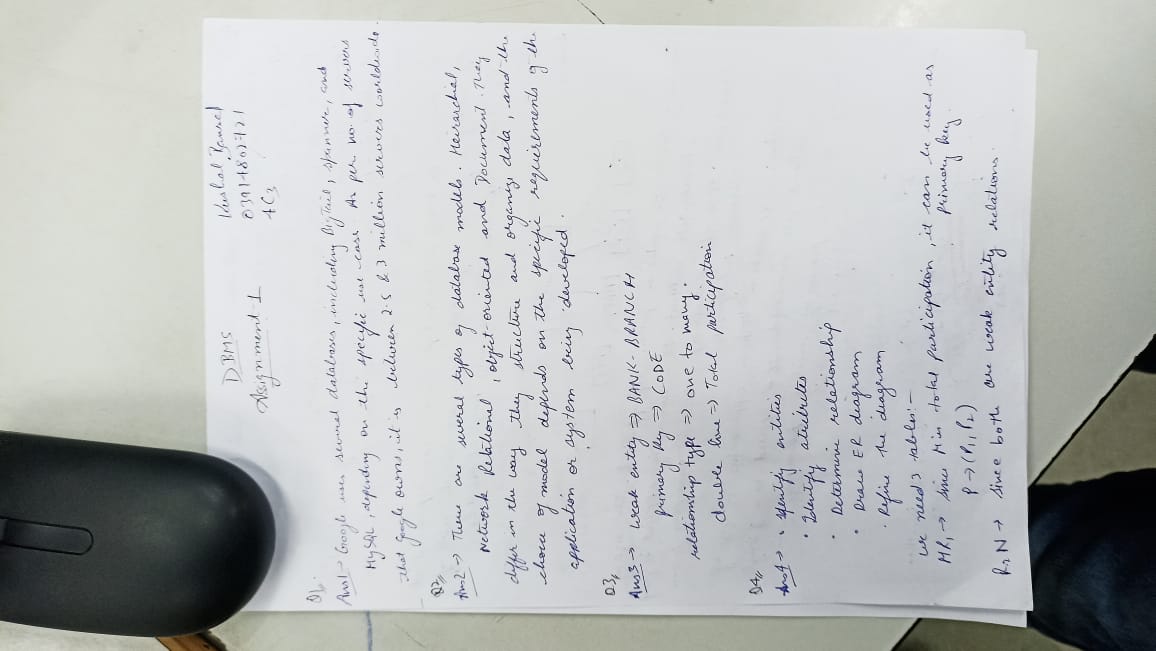 DBMS
Assignment-1
Kushal Bansal
4C3
Q1.
Ans1 → Google uses several databases, including BigTail, spanner, and
MySQL, depending on the specific use-case. As per no. of servers
that google owns, it is between 2.5 & 3 million servers worldwide.
Q2.
Ans2 → There are several types of database models. Heirarchial,
Network Relational, object-oriented and Document. They
differ in the way they structure and organize data, and the
choice of model depends on the specific requirements of the
application or system being developed.
Q3.
Ans3 → weak entity ⇒ BANK-BRANCH
primary key ⇒ CODE
relationship type ⇒ one to many.
double line ⇒ Total participation
Q4.
Ans4 → • Identify entities
• Identify attributes
• Determine relationship
• Draw ER diagram
• Refine the diagram
we need 3 tables:-
MR1 → since M in total participation, it can be used as
primary key
P → (P1, P2)
R3 N → since both are weak entity relations.